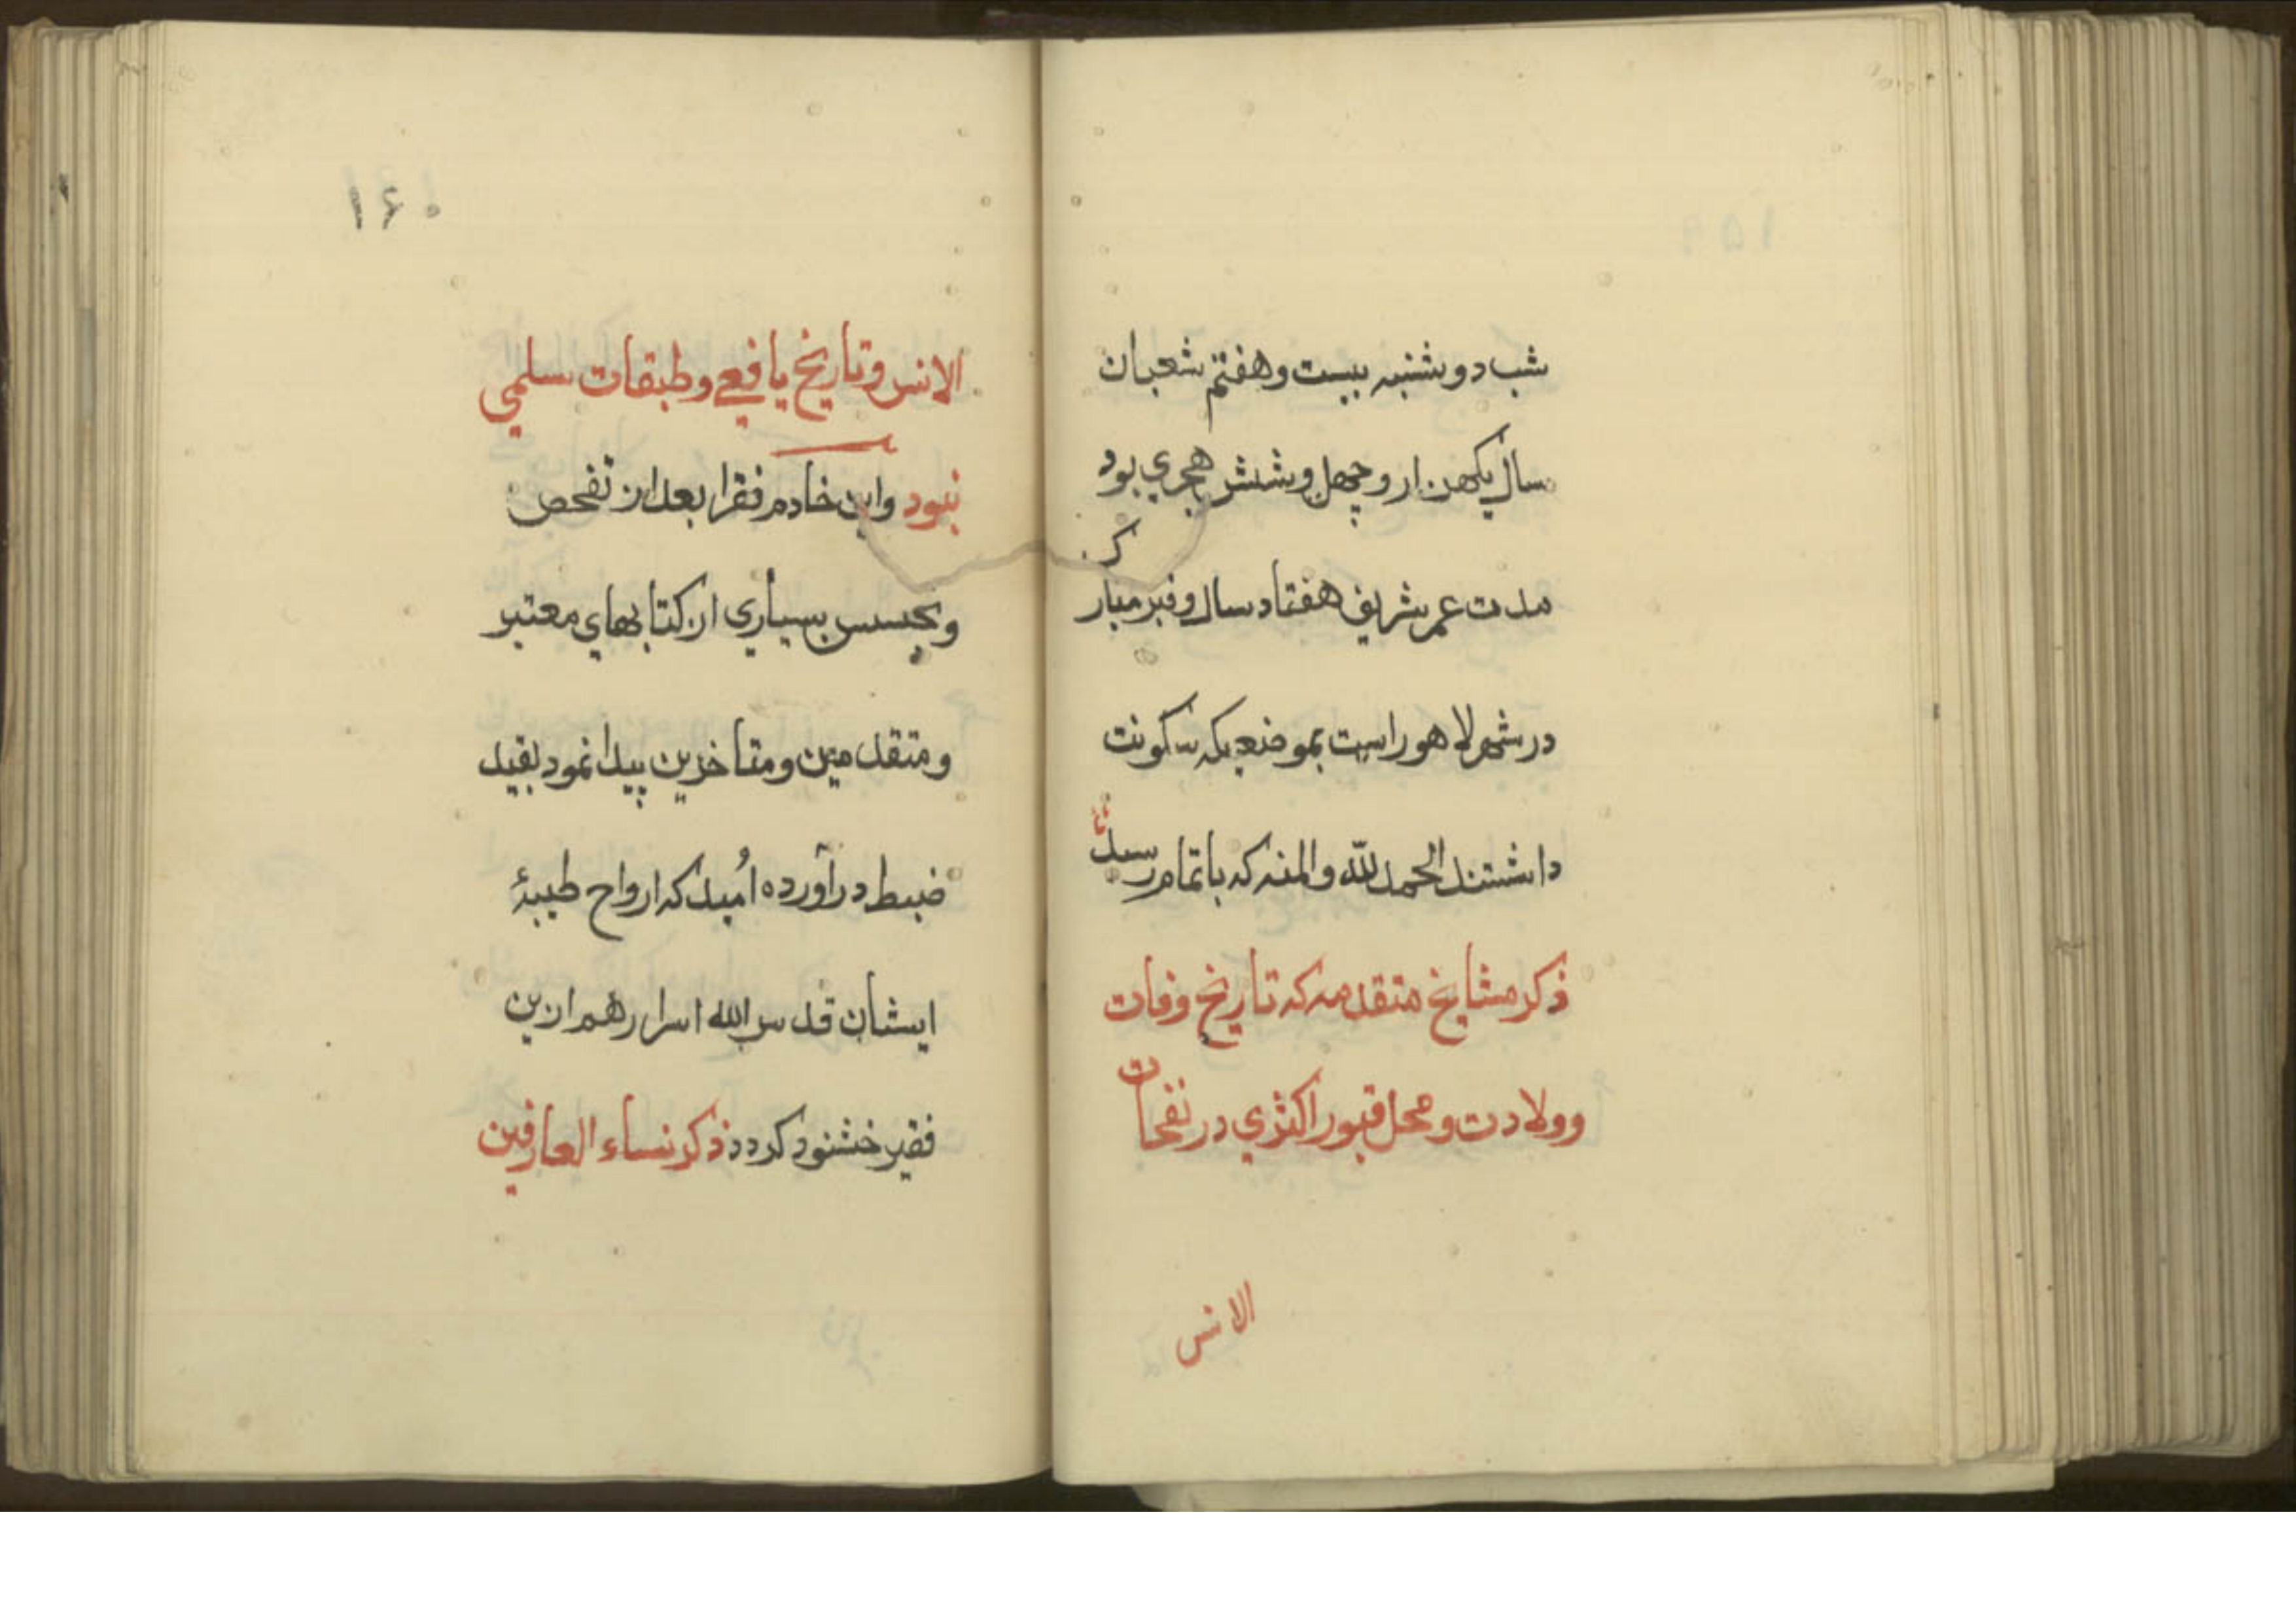 شب دوشنبه بیست وهفتم شعبان
سال یکهزار وچهل وشش هجري بود
مدت عمر شریف هفتاد سال وقبر مبارک
در شهر لاهور است بموضعیکه سکونت
داشتند الحمد لله والمنه که باتمام رسید
ذکر مشایخ متقدمه که تاریخ وفات
وولادت ومحل قبور اکثري در نفحات
الانس
۱۶۰
الانس وتاریخ یافعي وطبقات سلمي
نبود واین خادم فقرا بعد از تفحص
وتجسس بسیاري از کتابهاي معتبر
ومتقدمین ومتاخرین پیدا نمود بقید
ضبط درآورده اُمید که ارواح طیبۀ
ایشان قدس الله اسرارهم ازین
فقیر خشنود کردد ذکر نساء العارفین